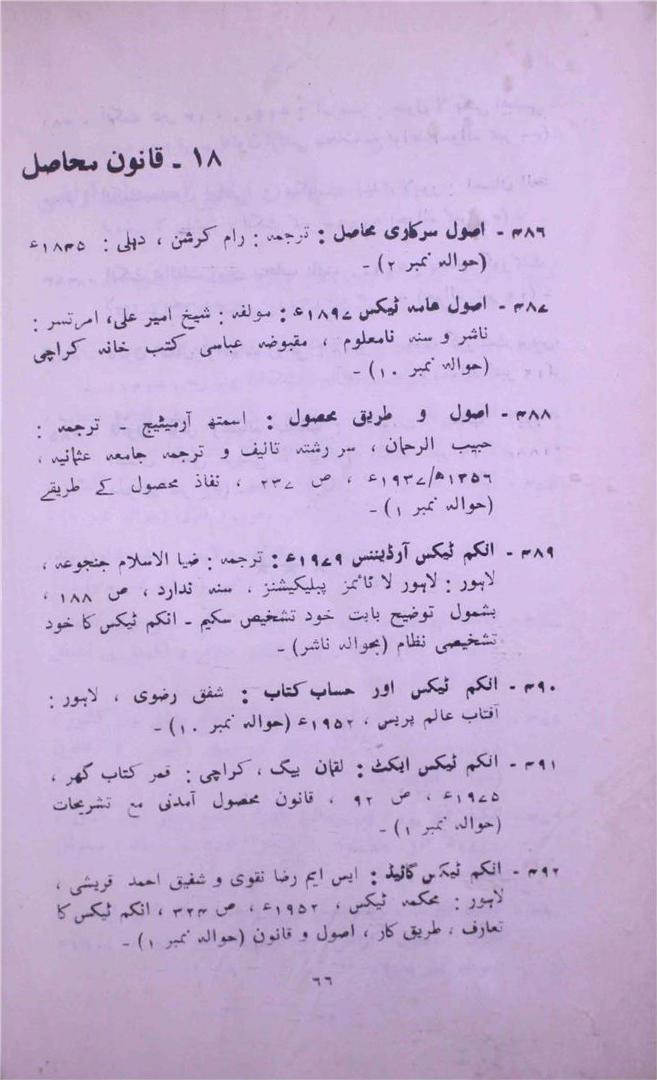 ۱۸ ـ قانون محاصل
۳۸۶ ـ اصول سرکاری محاصل : ترجمہ : رام کرشن ، دہلی : ۱۸۴۵ء
(حوالہ نمبر ۲) ـ
۳۸۷ ـ اصول ھاسہ ٹیکس ۱۸۹۷ء : مولفہ : شیخ امیر علی، امرتسر :
ناشر و سنہ نامعلوم ، مقبوضہ عباسی کتب خانہ کراچی
(حوالہ نمبر ۱۰) ـ
۳۸۸ ـ اصول و طریق محصول : اسمتھ آرمیٹیج ـ ترجمہ :
حبیب الرحمان ، سر رشتہ تالیف و ترجمہ جامعہ عثمانیہ ،
۱۳۵۶ھ/۱۹۳۷ء ، ص ۲۳۷ ، نفاذ محصول کے طریقے
(حوالہ نمبر ۱) ـ
۳۸۹ ـ انکم ٹیکس آرڈیننس ۱۹۷۹ء : ترجمہ : ضیا الاسلام جنجوعہ ،
لاہور : لاہور لا ٹائمز پبلیکیشنز ، سنہ ندارد ، ص ۱۸۸ ،
بشمول توضیح بابت خود تشخیص سکیم ـ انکم ٹیکس کا خود
تشخیصی نظام (بحوالہ ناشر) ـ
۳۹۰ ـ انکم ٹیکس اور حساب کتاب : شفق رضوی ، لاہور :
آفتاب عالم پریس ، ۱۹۵۲ء (حوالہ نمبر ۱۰) ـ
۳۹۱ ـ انکم ٹیکس ایکٹ : لقمان بیگ ، کراچی : قمر کتاب گھر ،
۱۹۷۵ء ، ص ۹۲ ، قانون محصول آمدنی مع تشریحات
(حوالہ نمبر ۱) ـ
۳۹۲ ـ انکم ٹیکس گائیڈ : ایس ایم رضا نقوی و شفیق احمد قریشی ،
لاہور : محکمہ ٹیکس ، ۱۹۵۲ء ، ص ۳۲۳ ، انکم ٹیکس کا
تعارف ، طریق کار ، اصول و قانون (حوالہ نمبر ۱) ـ
۶۶